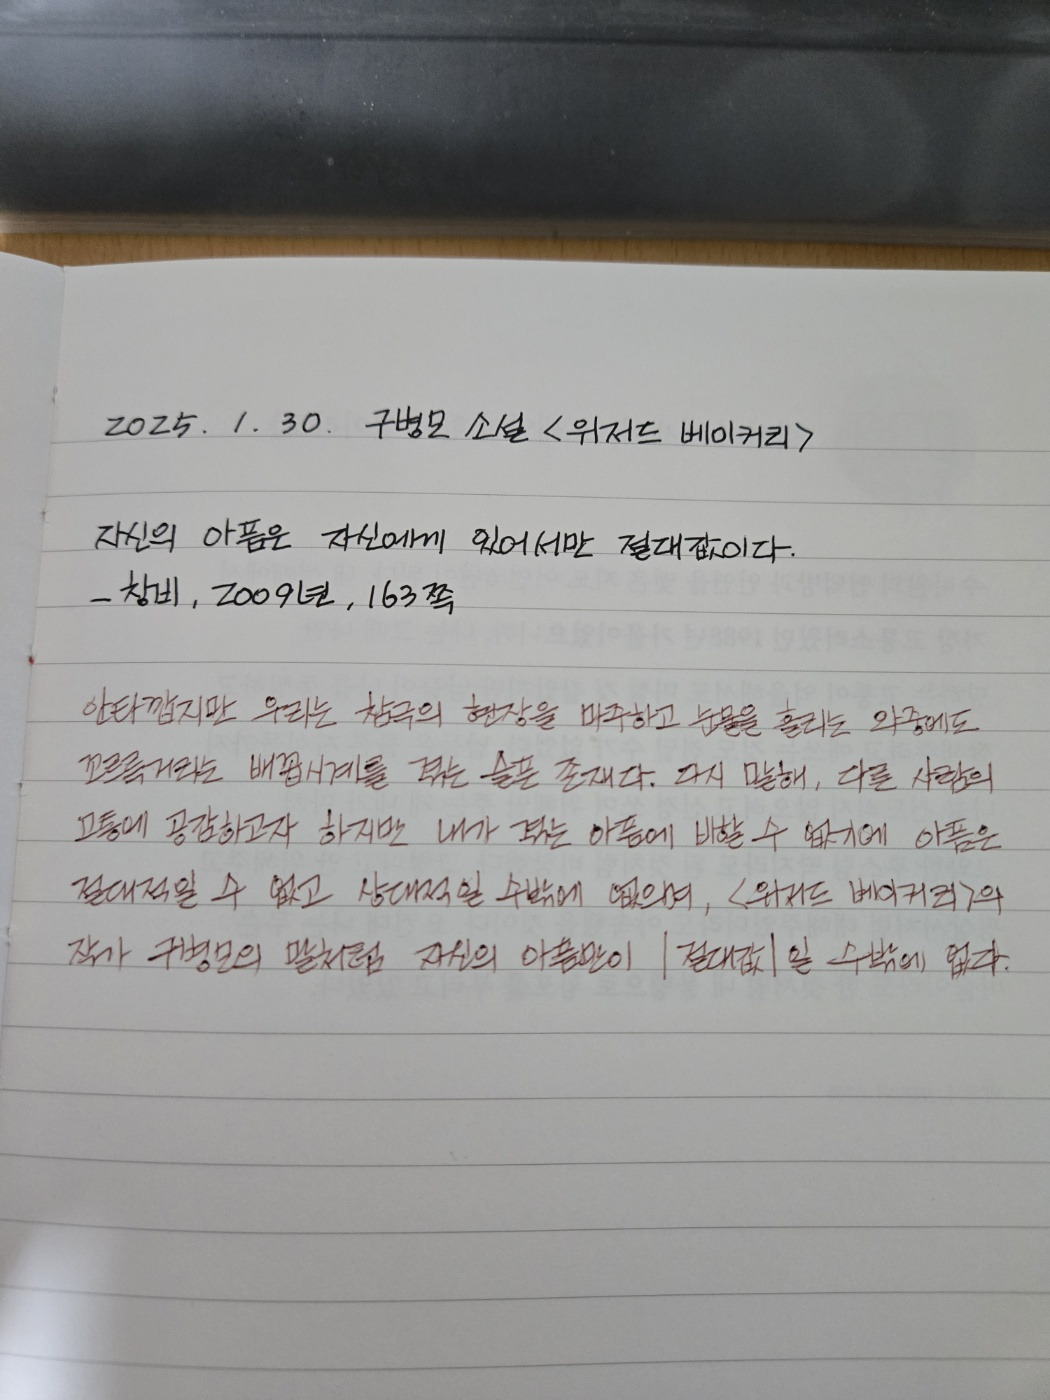 2025. 1. 30. 구병모 소설 <위저드 베이커리>
자신의 아픔은 자신에게 있어서만 절대값이다.
- 창비, 2009년, 163쪽
안타깝지만 우리는 참극의 현장을 마주하고 눈물을 흘리는 와중에도
꼬르륵거리는 배꼽시계를 겪는 슬픈 존재다. 다시 말해, 다른 사람의
고통에 공감하고자 하지만 내가 겪는 아픔에 비할 수 없기에 아픔은
절대적일 수 없고 상대적일 수밖에 없으며, <위저드 베이커리>의
작가 구병모의 말처럼 자신의 아픔만이 |절대값|일 수밖에 없다.